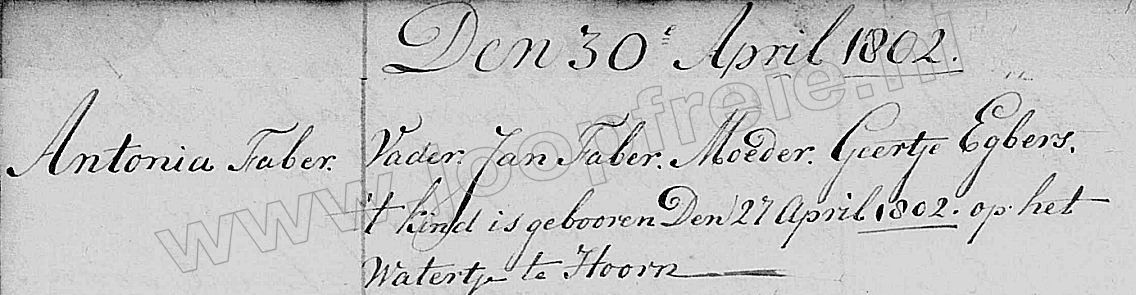 Den 30e April 1802.
Antonia Faber. Vader. Jan Faber. Moeder. Geertje Egbers.
't kind is gebooren Den 27 April 1802. op het
Watertje te Hoorn
www.joopfreie.nl